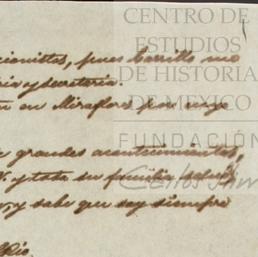 CENTRO DE
ESTUDIOS
DE HISTORIA
DE MEXICO
FUNDACIÓN
cionistas, pues Carrillo me
ria y secretaria.
en Miraflores por
grandes acontecimientos,
y toda su familia
y sabe que soy siempre